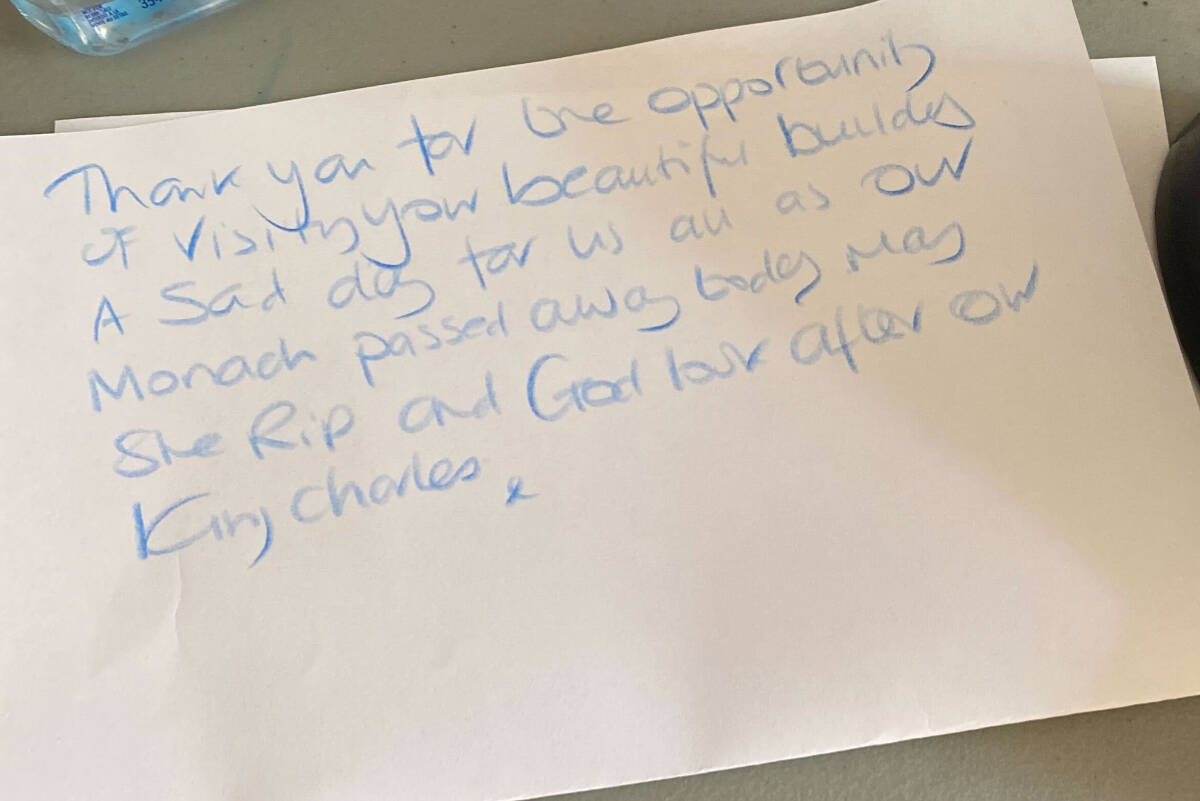 354
Thank you for the opportunity
of visiting your beautiful building
A Sad day for us all as our
Monach passed away today. May
She Rip and God look after our
King Charles. x